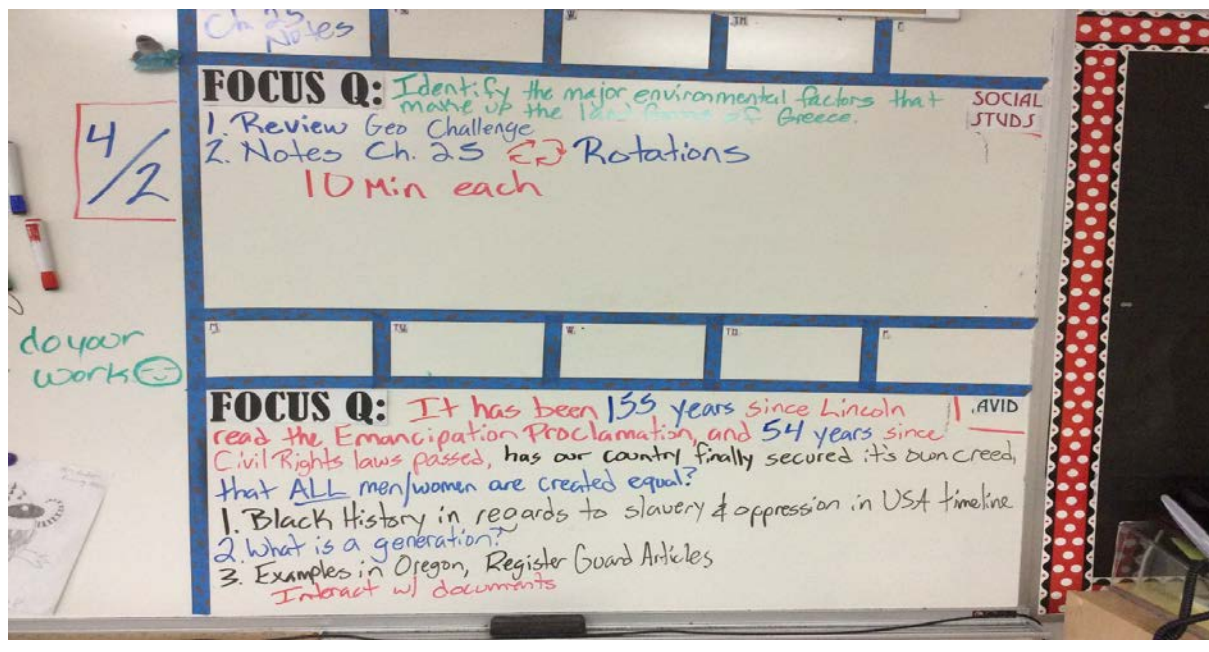 Ch. 25
Notes
TH.
FOCUS Q: Identify the major environmental factors that
make up the land forms of Greece.
SOCIAL
STUDS
1. Review Geo Challenge
2. Notes Ch. 25 Rotations
10 Min each
4/2
do your
work
M. TU. W. TH. F.
FOCUS Q: It has been 155 years since Lincoln
AVID
read the Emancipation Proclamation, and 54 years since
Civil Rights laws passed, has our country finally secured it's own creed,
that ALL men/women are created equal?
1. Black History in regards to slavery & oppression in USA timeline
2. What is a generation?
3. Examples in Oregon, Register Guard Articles
Interact w/ documents